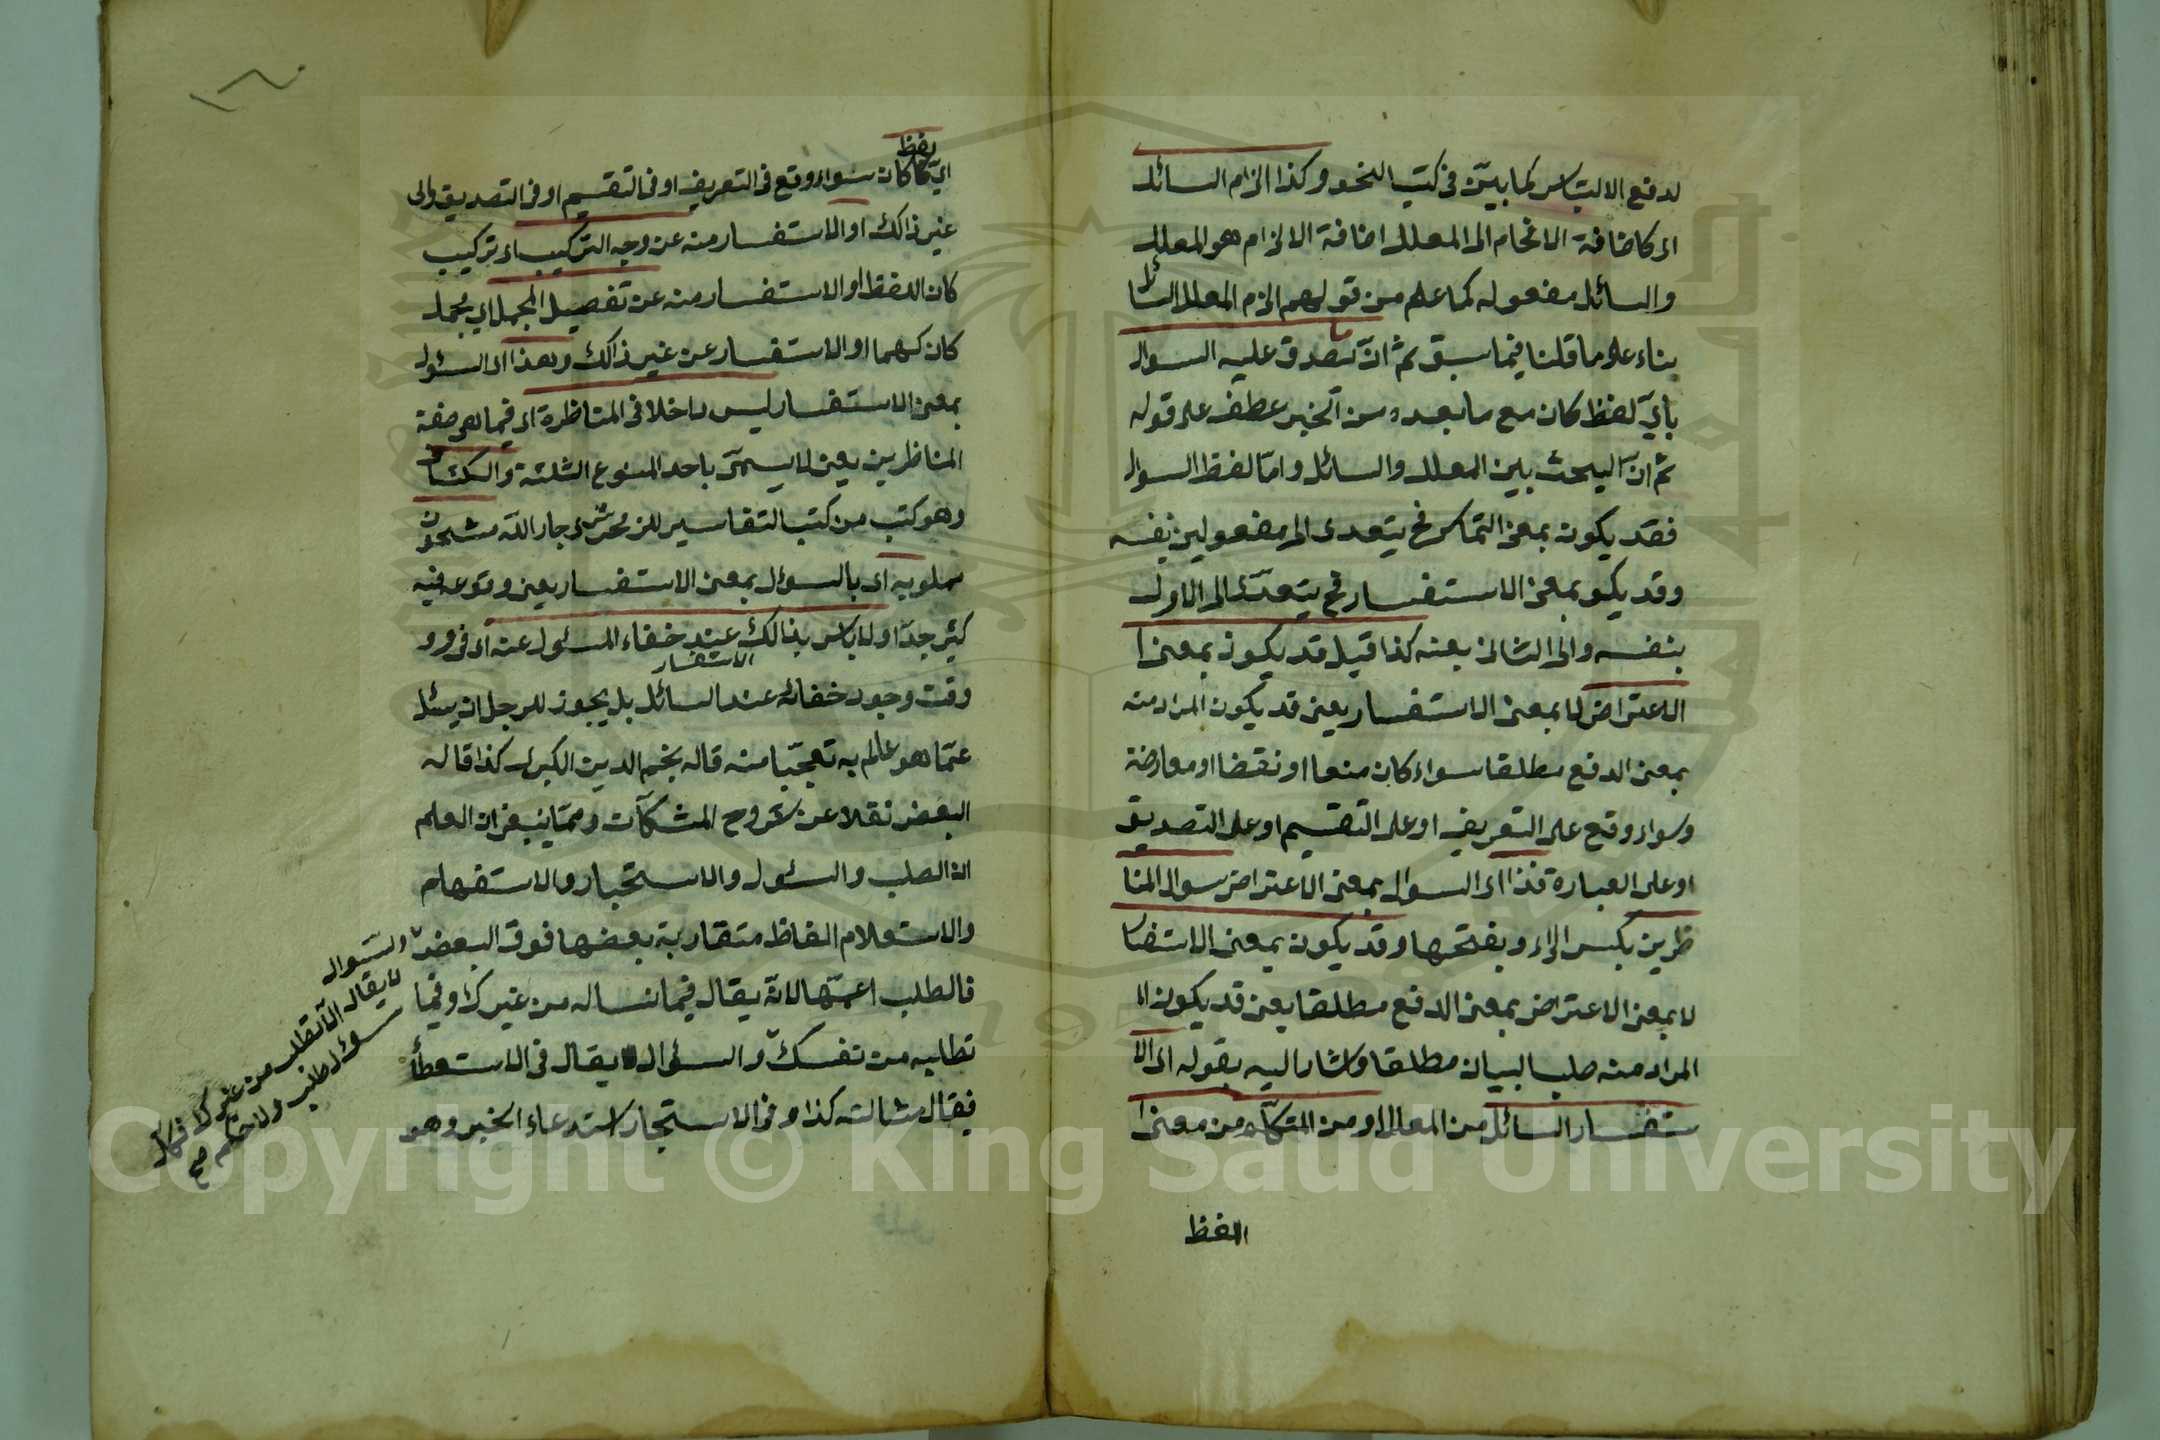 لدفع الالتباس كما بيّن فى كتب النحو وكذا الزام السائل
اى كاضافة الافحام الى المعلل اضافة الالزام هو المعلل
والسائل مفعوله كما علم من قولهم الزم المعلل السائل
بناء على ما قلنا فيما سبق ثم انّ ما يصدق عليه السوال
بايّ لفظ كان مع ما بعده من الخبر عطف على قوله
ثم انّ البحث بين المعلل والسائل وامّا لفظ السوال
فقد يكون بمعنى التماس فح يتعدى الى مفعولين نفسه
وقد يكو بمعنى الاستفسار فح يتعدّى الى الاول
بنفسه والى الثانى بعنه كذا قيل قد يكون بمعنى ا
الاعتراض لا بمعنى الاستفسار يعنى قد يكون المراد منه
بمعنى الدفع مطلقا سواء كان منعا او نقضا او معارضة
وسواء وقع على التعريف او على التقسيم او على التصديق
او على العبارة فذا اى السوال بمعنى الاعتراض سوال المنا
ظرين بكسر الراء وبفتحها وقد يكون بمعنى الاستفسا
لا بمعنى الاعتراض بمعنى الدفع مطلقا يعنى قد يكون ا
المراد منه طلب البيان مطلقا واشار اليه بقوله اى الا
ستفسار السائل من المعلل او من المتكلم من معنى ا
اللفظ
لفظ
ايّ كا كان سواء وقع فى التعريف او فى التقسيم او فى التصديق والى
غير ذالك او الاستفسار منه عن وجه التركيب اى تركيب
كان اللفظ او الاستفسار منه عن تفصيل المجمل اى مجمل
كان كهما او الاستفسار عن غير ذالك وهذا اى السئول
بمعنى الاستفسار ليس داخلا فى المناظرة اى فيما هو صفة
المناظرين يعنى لا يسمّى باحد المنوع الثلثة والكشاف
وهو كتب من كتب التفاسير للزمخشرى جار الله مشحون
مملو به اى بالسؤال بمعنى الاستفسار يعنى وقوعه فيه
كثير جدّا ولا باس بذالك عند خفاء المسئول عنه اى فى
الاستفسار
وقت وجود خفائه عند السائل بل يجوز للرجل ان يسئل
عمّا هو عالم به تعجّبا منه قاله نجم الدين الكبرى كذا قاله
البعض نقلا عن شروح المشكآت وممّا ينبغى ان العلم
ان الطلب والسئول والاستخبار والاستفهام
والاستعلام الفاظ متقاربة بعضها فوق البعض
فالطلب اعمّها لانّه يقال فيما نساله من غيرك وفيما
تطلبه من نفسك والسؤال لا يقال فى الاستعطأ
فيقال مثالته كذا وفى الاستخبار استدعاء الخبر وهو
والسّوال
لا يقال الّا تطلب من غيرك فكلّ
سؤال طلب ولا عكس صح